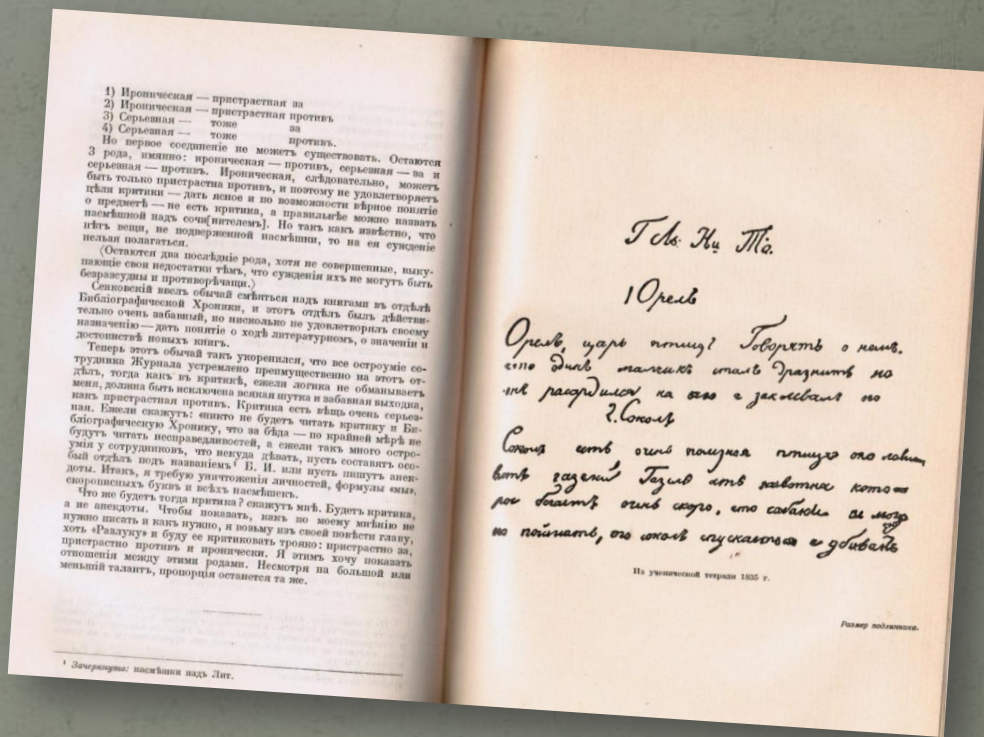 1) Ироническая — пристрастная за
2) Ироническая — пристрастная противъ
3) Серьезная — тоже за
4) Серьезная — тоже противъ.
Но первое соединеніе не можетъ существовать. Остаются
3 рода, имянно: ироническая — противъ, серьезная — за и
серьезная — противъ. Ироническая, слѣдовательно, можетъ
быть только пристрастна противъ, и поэтому не удовлетворяетъ
цѣли критики — дать ясное и по возможности вѣрное понятіе
о предметѣ — не есть критика, а правильнѣе можно назвать
насмѣшкой надъ сочи[нителемъ]. Но такъ какъ извѣстно, что
нѣтъ вещи, не подверженной насмѣшки, то на ея сужденіе
нельзя полагаться.
⟨Остаются два послѣдніе рода, хотя не совершенные, выку-
пающіе свои недостатки тѣмъ, что сужденія ихъ не могутъ быть
безразсудны и противорѣчащи.⟩
Сенковскій ввелъ обычай смѣяться надъ книгами въ отдѣлѣ
Библіографической Хроники, и этотъ отдѣлъ былъ дѣйстви-
тельно очень забавный, но нисколько не удовлетворялъ своему
назначенію — дать понятіе о ходѣ литературномъ, о значеніи и
достоинствѣ новыхъ книгъ.
Теперь этотъ обычай такъ укоренился, что все остроуміе со-
трудника Журнала устремлено преимущественно на этотъ от-
дѣлъ, тогда какъ въ критикѣ, ежели логика не обманываетъ
меня, должна быть исключена всякая шутка и забавная выходка,
какъ пристрастная противъ. Критика есть вѣщь очень серьез-
ная. Ежели скажутъ: «никто не будетъ читать критику и Би-
бліографическую Хронику, что за бѣда — по крайней мѣрѣ не
будутъ читать несправедливостей, а ежели такъ много остро-
умія у сотрудниковъ, что некуда дѣвать, пусть составятъ осо-
бый отдѣлъ подъ названіемъ¹ Б. И. или пусть пишутъ анек-
доты. Итакъ, я требую уничтоженія личностей, формулы «мы»,
скорописныхъ буквъ и всѣхъ насмѣшекъ.
Что же будетъ тогда критика? скажутъ мнѣ. Будетъ критика,
а не анекдоты. Чтобы показать, какъ по моему мнѣнію не
нужно писать и какъ нужно, я возьму изъ своей повѣсти главу,
хоть «Разлуку» и буду ее критиковать трояко: пристрастно за,
пристрастно противъ и иронически. Я этимъ хочу показать
отношенія между этими родами. Несмотря на большой или
меньшій талантъ, пропорція останется та же.
¹ Зачеркнуто: насмѣшки надъ Лит.
Г Ль: Ни То.
1 Орелъ
Орелъ, царь птицъ? Говорятъ о немъ.
что одинъ мальчик сталъ дразнить
рассердился на него и заклевалъ его
2. Соколъ
Соколъ есть, очень полезная птица она
газелей Газель есть животное кото
рое бегаетъ очень скоро, что собаки не могу
поймать, то соколъ спускается и убиваетъ
Из ученической тетради 1835 г.
Размер подлинника.